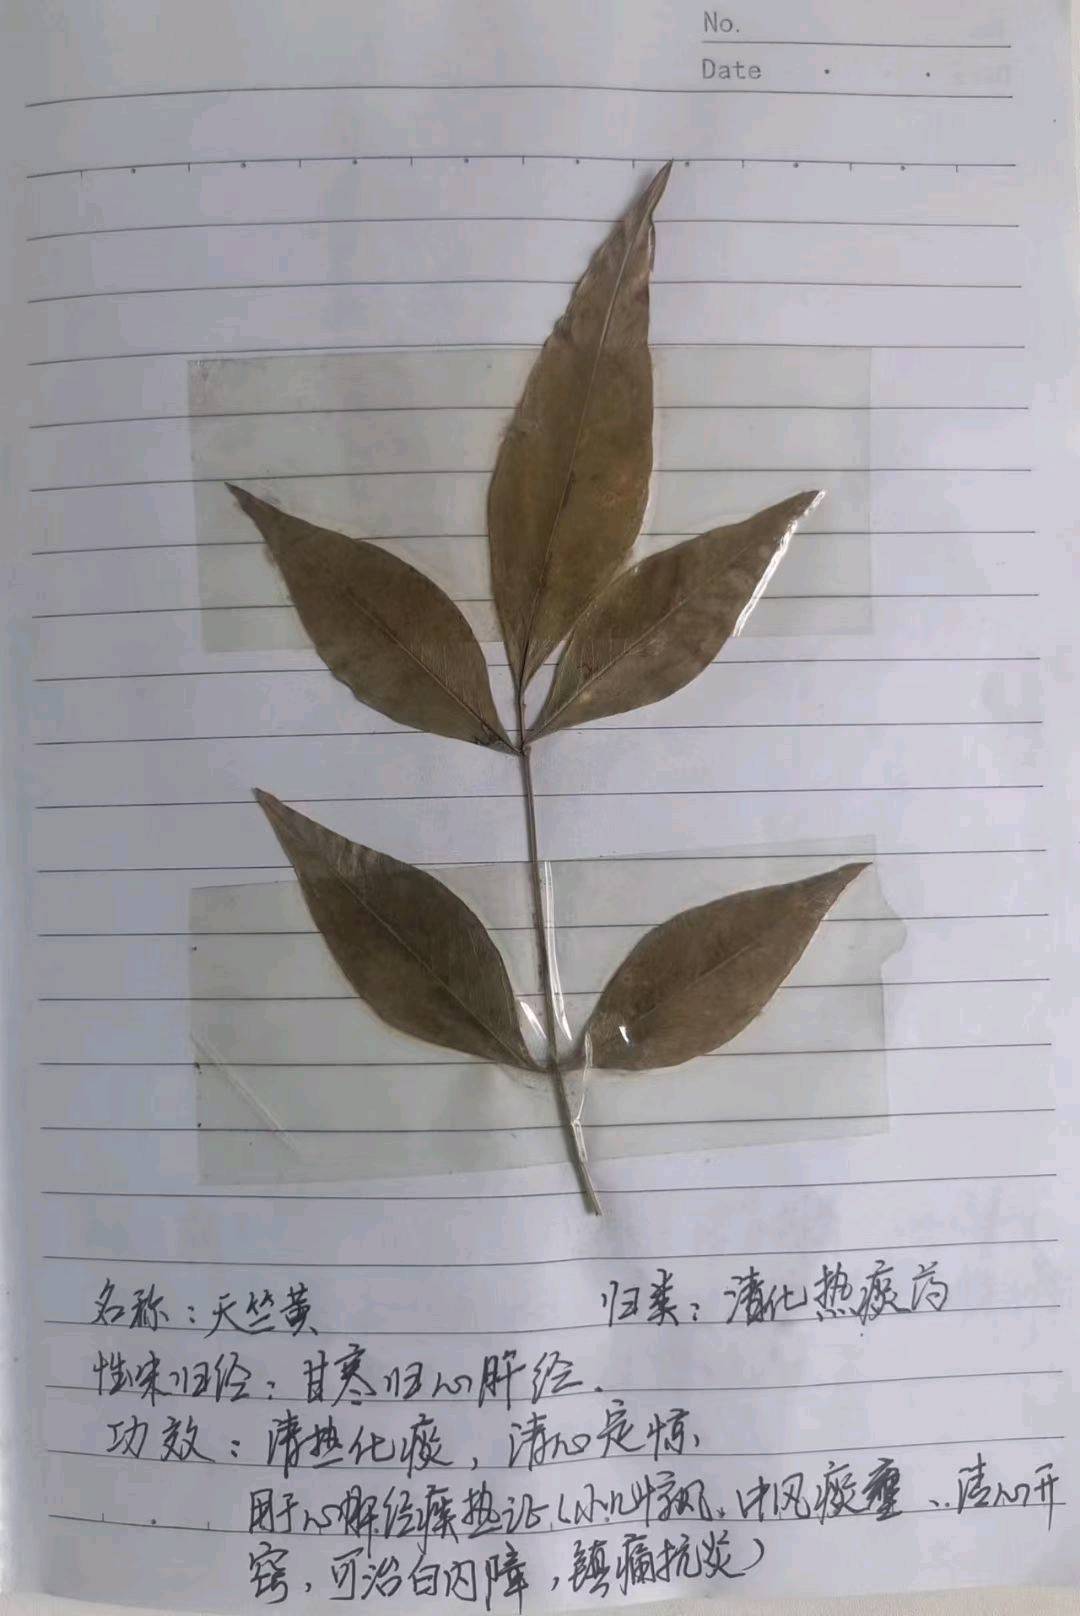 No.
Date
名称：天竺黄 归类：清化热痰药
性味归经：甘寒归心肝经.
功效：清热化痰，清心定惊,
用于心肝经痰热证(小儿惊风、中风痰壅、清心开
窍，可治白内障，镇痛抗炎)